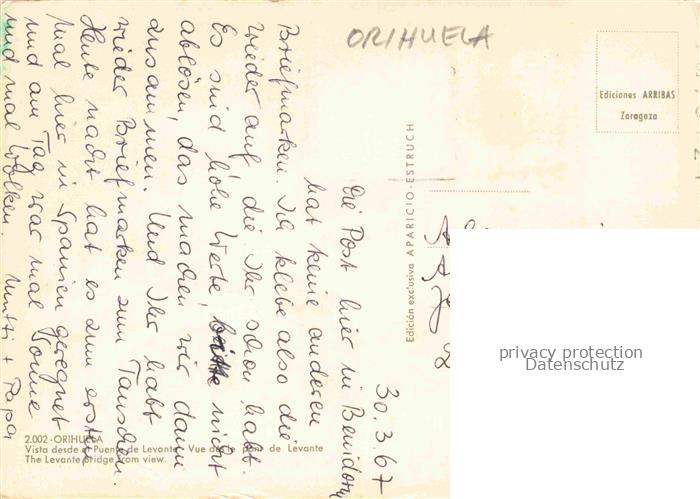 ORIHUELA
Ediciones ARRIBAS
Zaragoza
30.3.67
Die Post hier in Benidorm
hat keine anderen
Briefmarken. Ich klebe also die
wieder auf, die Ihr schon habt.
Es sind hohe Werte, bitte nicht
ablösen, das machen wir dann
zusammen. Und Ihr habt
wieder Briefmarken zum Tauschen.
Heute nacht hat es zum ersten
Mal hier in Spanien geregnet
und am Tag war mal Sonne
und mal Wolken. Mutti + Papa
Edición exclusiva APARICIO-ESTRUCH
2.002 - ORIHUELA
Vista desde el Puente de Levante. Vue du Pont de Levante
The Levante bridge from view.
privacy protection
Datenschutz